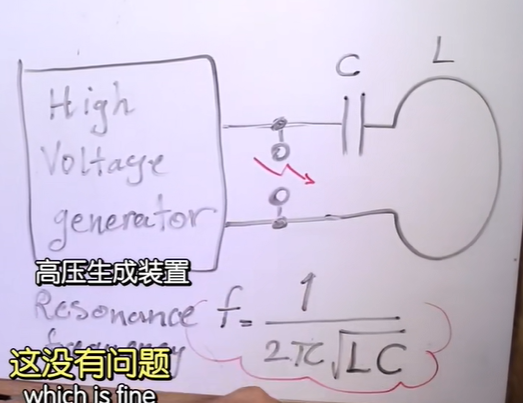 High
Voltage
generator
C
L
高压生成装置
Resonance f = 1 / 2π√LC
这没有问题
which is fine